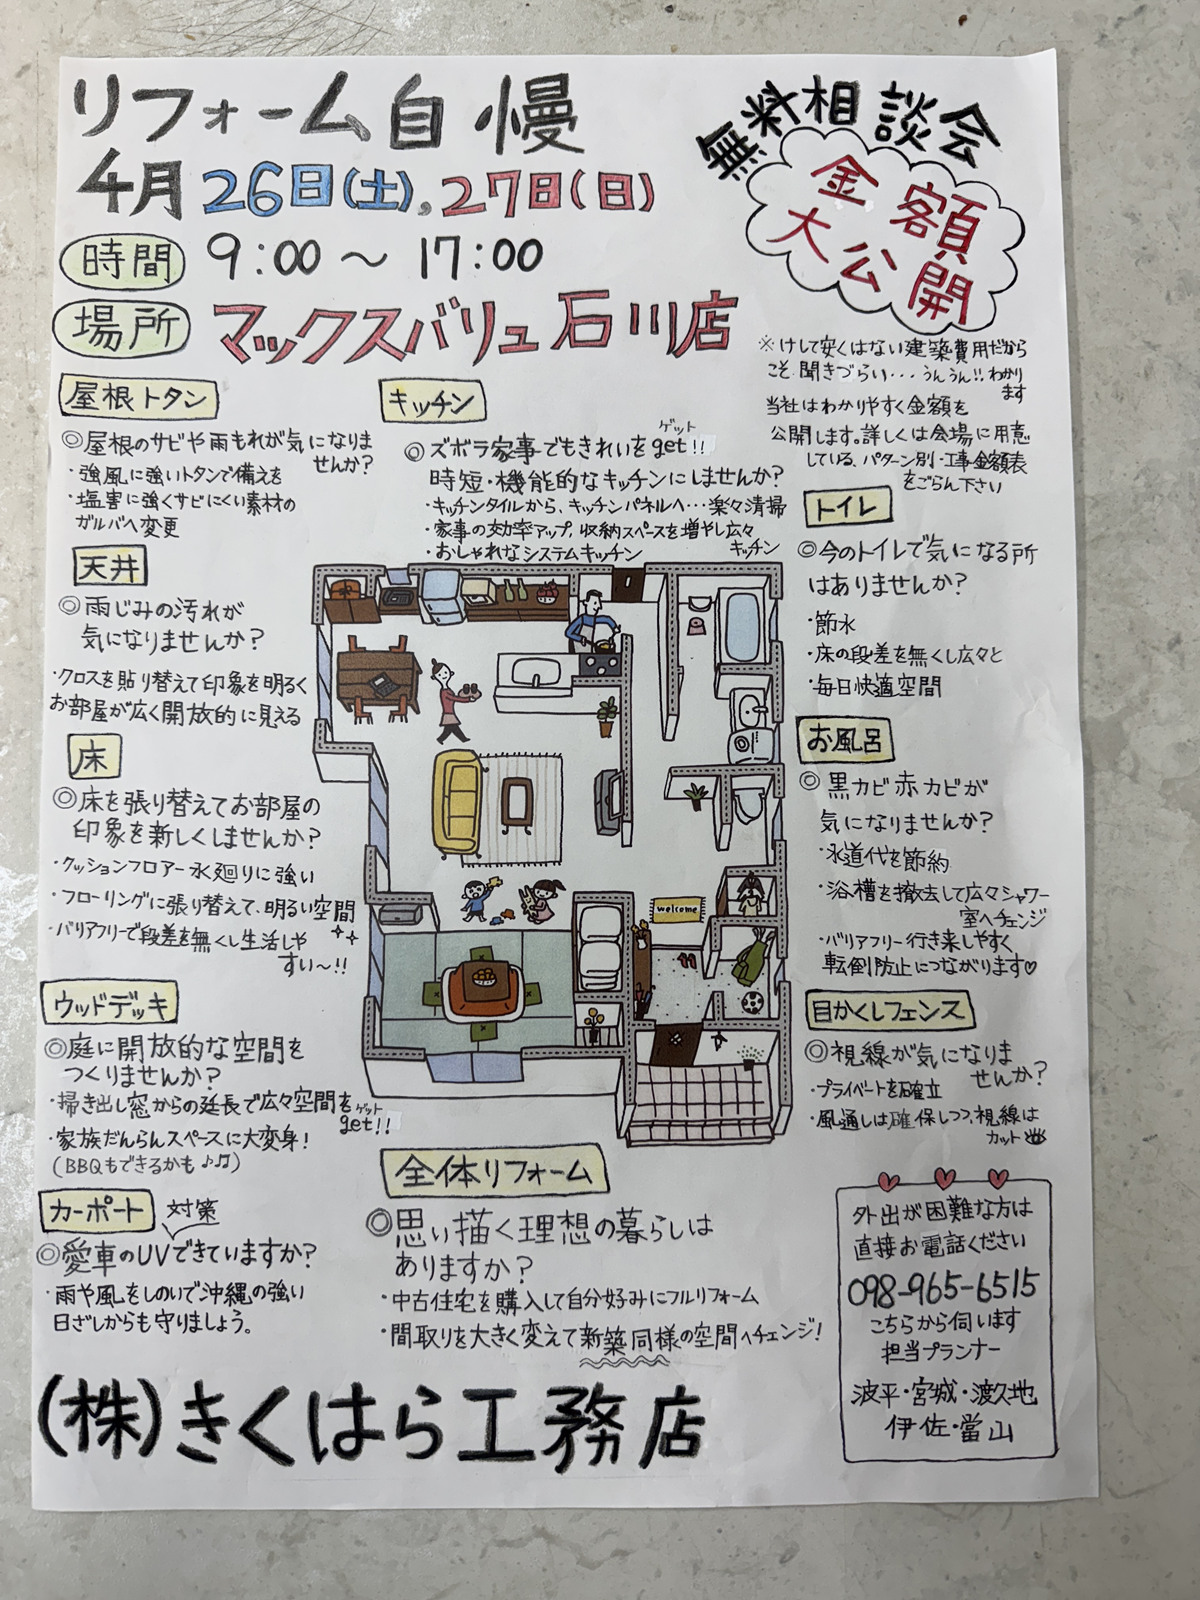 リフォーム自慢
無料相談会
金額
大公開
4月26日(土),27日(日)
時間 9:00～17:00
場所 マックスバリュ石川店
※けして安くはない建築費用だから
こそ聞きづらい・・・うんうん!!わかり
ます
当社はわかりやすく金額を
公開します。詳しくは会場に用意
している、パターン別・工事金額表
をごらん下さい
屋根トタン
◎屋根のサビや雨もれが気になりま
せんか?
・強風に強いトタンで備えを
・塩害に強くサビにくい素材の
ガルバへ変更
天井
◎雨じみの汚れが
気になりませんか?
・クロスを貼り替えて印象を明るく
お部屋が広く開放的に見える
床
◎床を張り替えてお部屋の
印象を新しくしませんか?
・クッションフロアー水廻りに強い
・フローリングに張り替えて、明るい空間
・バリアフリーで段差を無くし生活しや
すい～!!
ウッドデッキ
◎庭に開放的な空間を
つくりませんか?
・掃き出し窓からの延長で広々空間を
ゲット
get!!
・家族だんらんスペースに大変身!
(BBQもできるかも♪♫)
カーポート
対策
◎愛車のUVできていますか?
・雨や風をしのいで沖縄の強い
日ざしからも守りましょう。
キッチン
ゲット
◎ズボラ家事でもきれいをget!!
時短・機能的なキッチンにしませんか?
・キッチンタイルから、キッチンパネルへ・・・楽々清掃
・家事の効率アップ、収納スペースを増やし広々
キッチン
・おしゃれなシステムキッチン
welcome
全体リフォーム
◎思い描く理想の暮らしは
ありますか?
・中古住宅を購入して自分好みにフルリフォーム
・間取りを大きく変えて新築同様の空間へチェンジ!
トイレ
◎今のトイレで気になる所
はありませんか?
・節水
・床の段差を無くし広々と
・毎日快適空間
お風呂
◎黒カビ赤カビが
気になりませんか?
・水道代を節約
・浴槽を撤去して広々シャワー
室へチェンジ
・バリアフリー行き来しやすく
転倒防止につながります♡
目かくしフェンス
◎視線が気になりま
せんか?
・プライベートを確立
・風通しは確保しつつ、視線は
カット
外出が困難な方は
直接お電話ください
098-965-6515
こちらから伺います
担当プランナー
波平・宮城・渡久地
伊佐・當山
(株)きくはら工務店